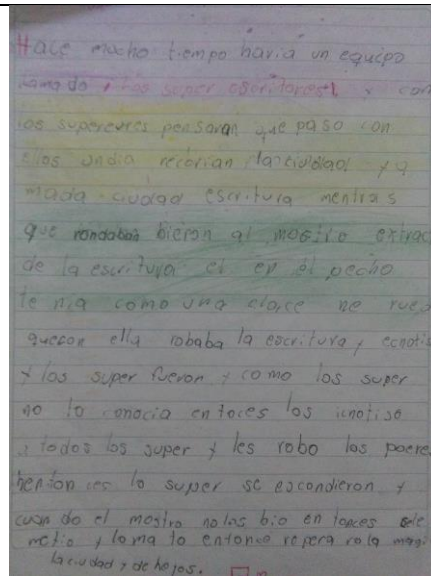 Hace mucho tiempo havia un equipo
llamado ¡los super escritores! y con
los supereures pensaran que paso con
ellos undia recorian la ciudad ya
mada ciudad escritura mentras
que rondaban bieron al mostro extrac
de la escritura el en el pecho
tenia como una clace ne rued
quecon ella robaba la escritura, ecnotis
y los super fueron y como los super
no lo conocia entoces los icnotiso
a todos los super y les robo los poere
hentonces lo super se escondieron y
cuando el mostro nolos bio entonces sele
metio y loma to entonce repera rola
la ciudad y dehojos.